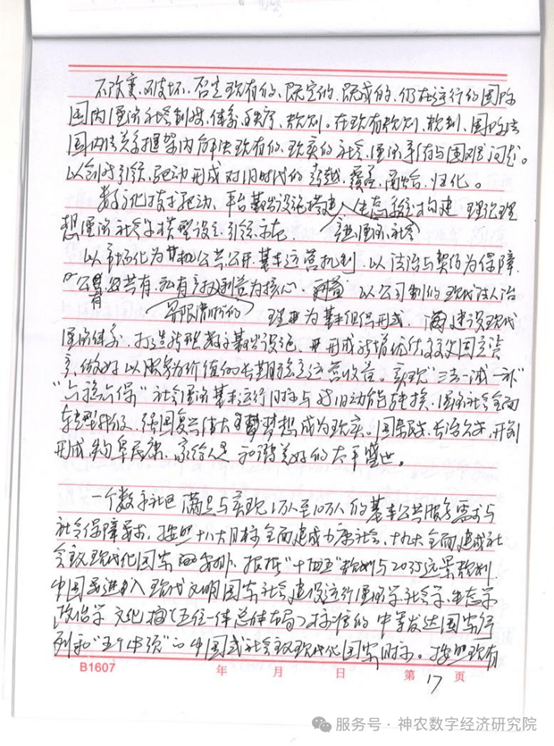 不改变、不破坏、否定现有的、既定的、既成的、仍在运行的国际
国内经济和受制度、体系、秩序、规则。在现有规划、机制、国际法
国内法关系框架内解决现有的、现实的社会、经济矛盾与困难问题。
以创新引领、驱动形成对旧时代的超越、覆盖、融合、归化。
数字化技术驱动、平台基础设施搭建、生态系统构建 理论理
想经济社会模型设立引领示范、 今进经济社会
以市场化为 公共公开、基本运营机制、以法治与契约为保障
"公有公共有、私有 权利益为核心、 以公司制的现代法人治
有限责任的 理 为基本组织形式、 建设现代
经济体系、打造新型数字基础设施、并形成新增优质 国定资
产、做好以服务为价值的长期稳定运营收益。实现"三去一减一补"
"六稳六保"社会经济基本运行目标与新旧动能转换、经济社会全面
转型升级、强国复兴伟大梦想成为现实、国泰民安、长治久安、开创
形成 物阜民康、家给人足 和谐美好的太平盛世。
一个数字社区 满足与实现1万人至10万人的基本公共服务需求与
社会保障需求、按照十八大目标全面建成小康社会、十九大全面建成社
会主义现代化国家的 、按照"十四五"规划与2035远景规划
中国要进入现代文明国家社会建设运行经济学、社会学、生态学、
政治学 文化 (五位一体总体布局)标准的中等发达国家行
列和"五个中国"的中国式社会主义现代化国家目标。按照现有
B1607 年 月 日 第 17 页
服务号 · 神农数字经济研究院